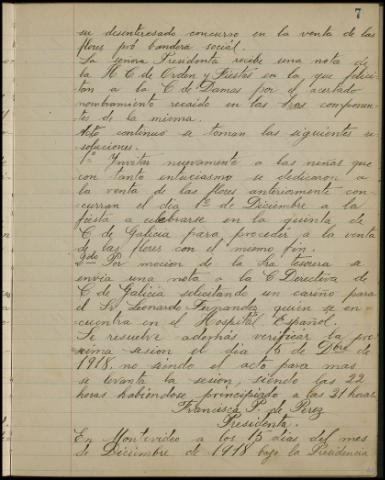 7
su desinteresado concurso en la venta de las
flores pró bandera social.
La señora Presidenta recibe una nota de
la H C de Orden y Fiestas en la que felici-
tan a la C de Damas por el acertado
nombramiento recaido en las Sras componen-
tes de la misma.
Acto continuo se toman las siguientes re-
soluciones.
1º Invitar nuevamente a las niñas que
con tanto entusiasmo se dedicaron a
la venta de las flores anteriormente con-
curran el dia 1º de Diciembre a la
fiesta a celebrarse en la quinta de
C de Galicia para proceder a la venta
de las flores con el mismo fin.
2do Por mocion de la Sra tesorera se
envia una nota a la C Directiva de
C de Galicia solicitando un cariño para
el Sr Leonardo Fernandez quien se en-
cuentra en el Hospital Español.
Se resuelve además verificar la pro-
xima sesion el dia 15 de Dbre de
1918, no siendo el acto para mas
se levanta la sesion, siendo las 22
horas habiendose principiado a las 21 horas
Francisca P. de Perez
Presidenta.
En Montevideo a los 15 dias del mes
de Diciembre de 1918 bajo la Presidencia